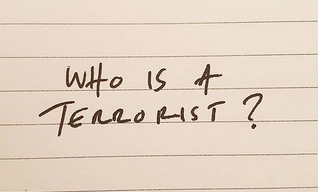 WHO IS A
TERRORIST?